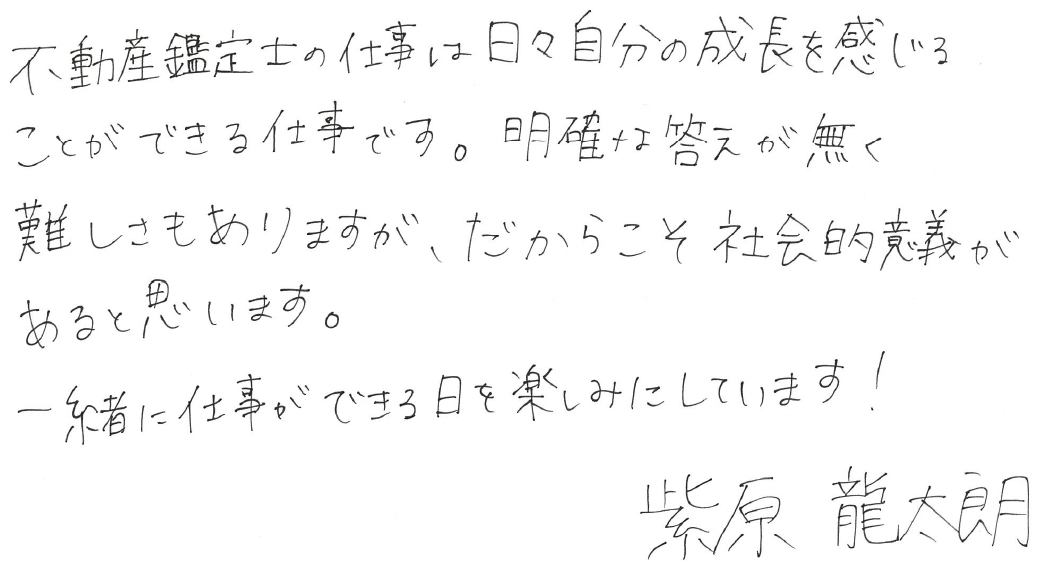 不動産鑑定士の仕事は日々自分の成長を感じる
ことができる仕事です。明確な答えが無く
難しさもありますが、だからこそ社会的意義が
あると思います。
一緒に仕事ができる日を楽しみにしています！
紫原 龍太朗